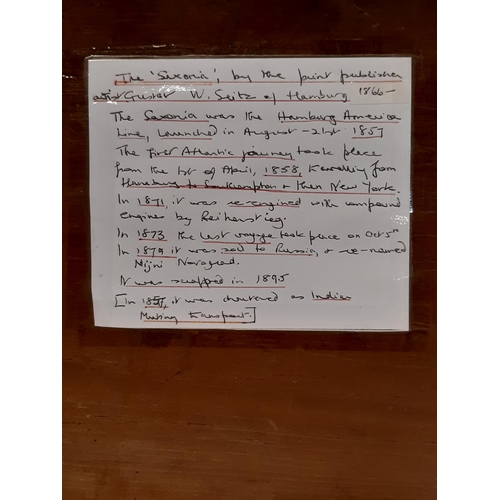 The 'Saxonia', by the print publisher
artist Gustav W. Seitz of Hamburg 1866-
The Saxonia was the Hamburg America
Line, launched in August - 21st 1857
The first Atlantic journey took place
from the 1st of April, 1858, travelling from
Hamburg to Southampton & then New York.
In 1871, it was re-engined with compound
engines by Reiherstieg.
In 1873 the last voyage took place on Oct 5th
In 1879 it was sold to Russia, & re-named
Nijni Novgorod.
It was scrapped in 1895
[In 1857, it was chartered as Indian
Mutiny transport.]